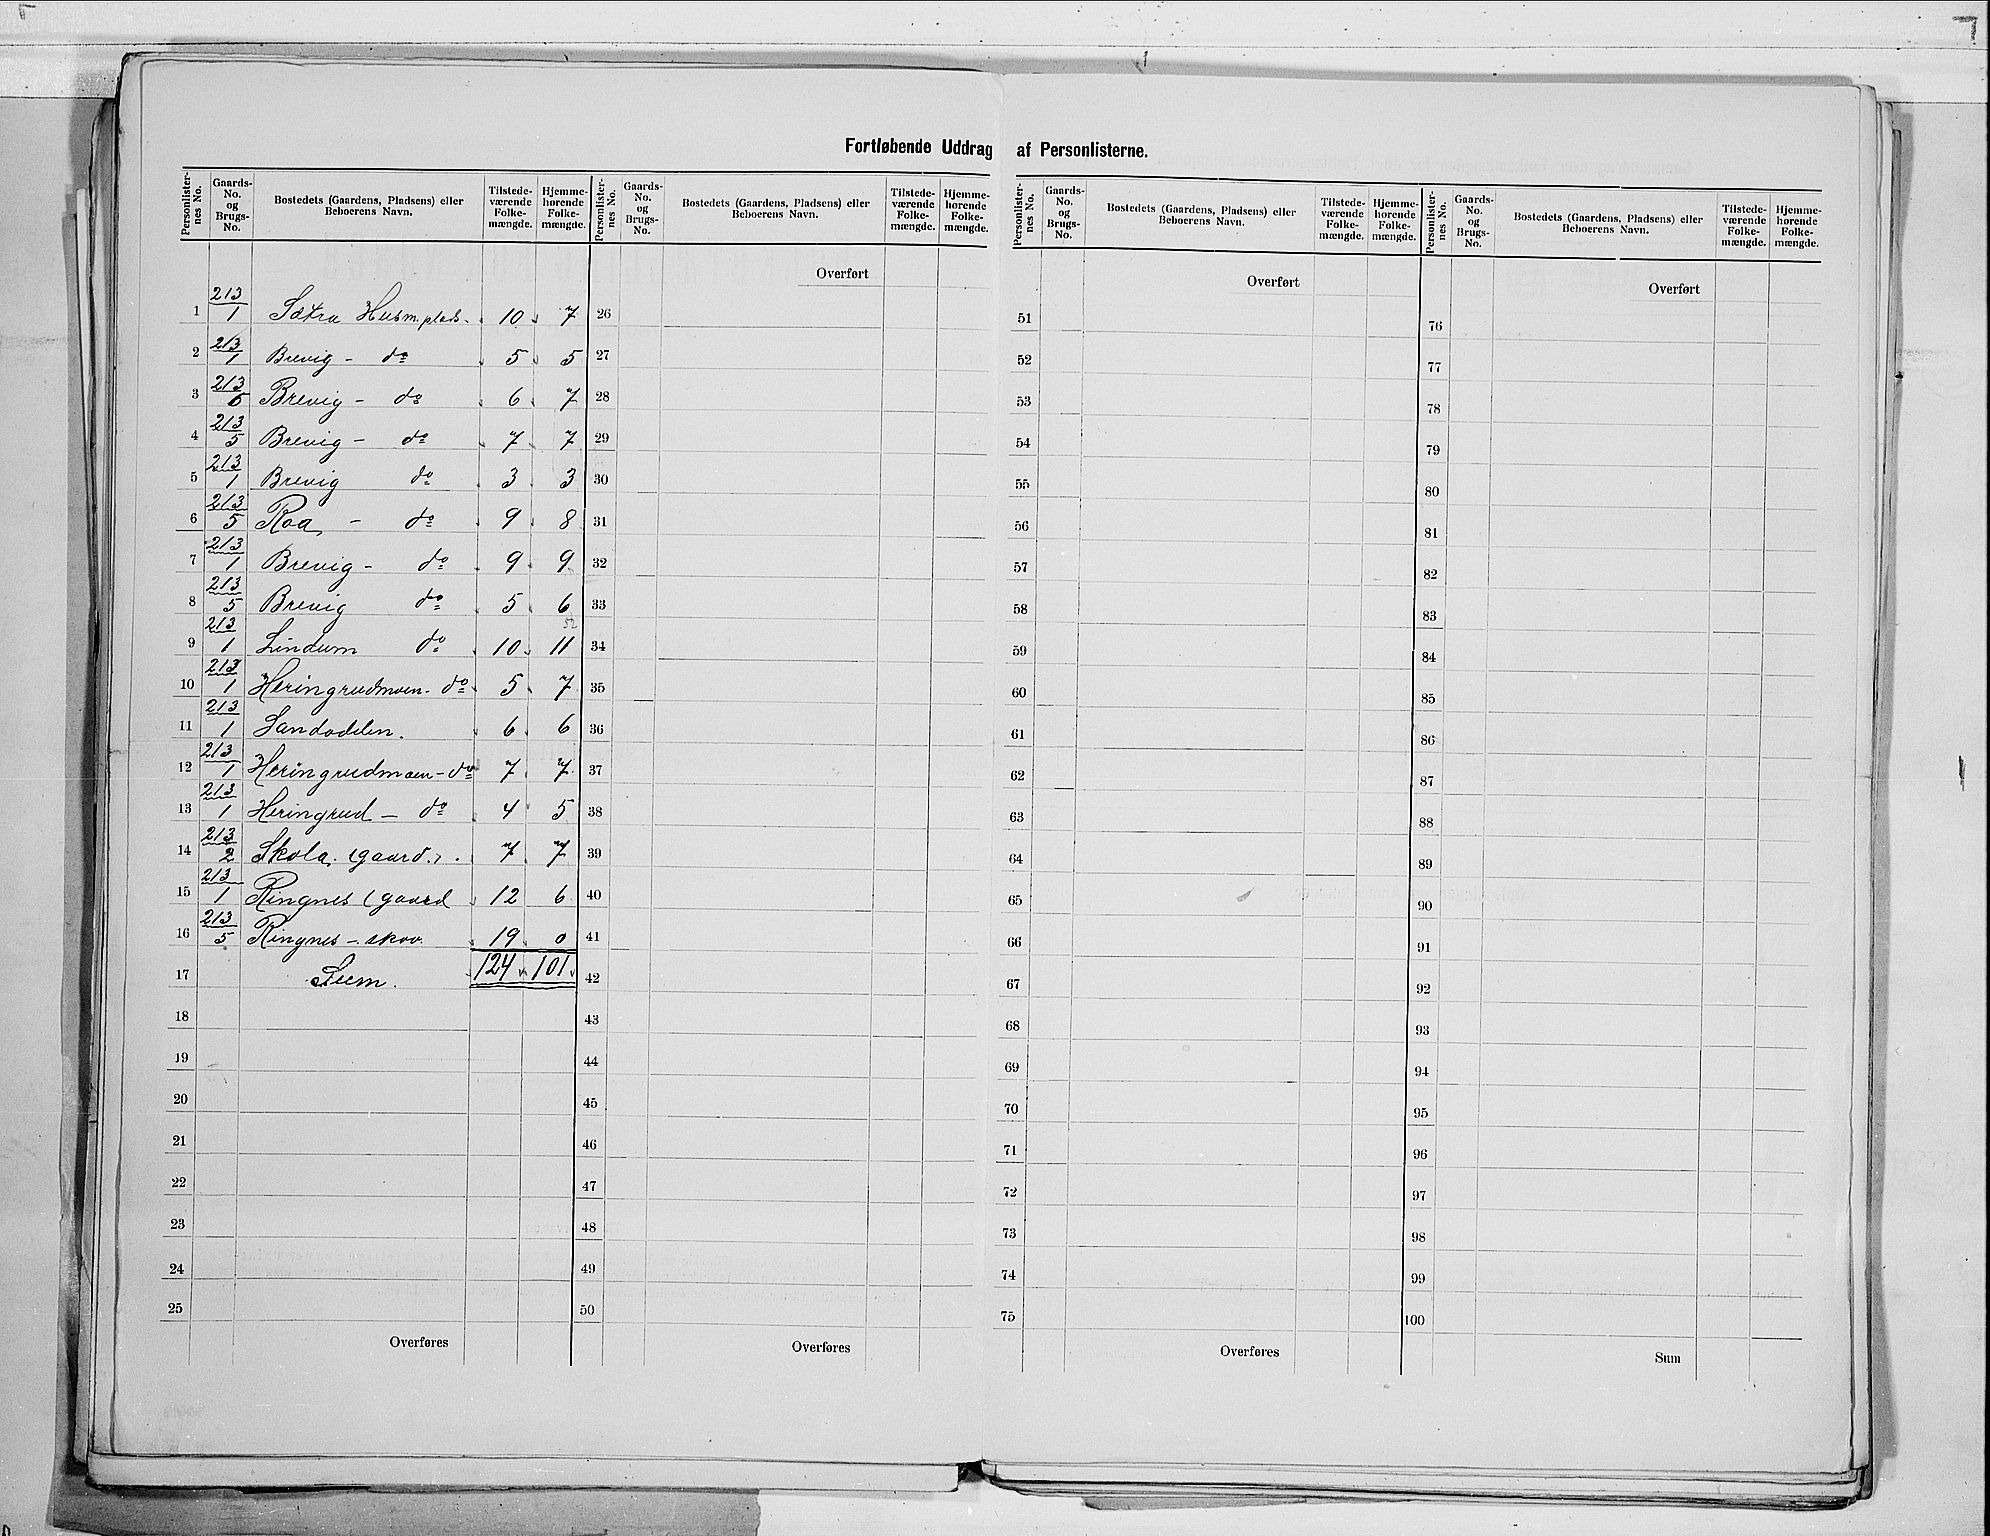 Fortløbende Uddrag af Personlisterne.
Personlister-nes No. | Gaards-No. og Brugs-No. | Bostedets (Gaardens, Pladsens) eller Beboerens Navn. | Tilstede-værende Folke-mængde. | Hjemme-hørende Folke-mængde.
1 | 213/1 | Sætra Husm.plads. | 10 | 7
2 | 213/1 | Brevig - do | 5 | 5
3 | 213/5 | Brevig - do | 6 | 7
4 | 213/5 | Brevig - do | 7 | 7
5 | 213/1 | Brevig do | 3 | 3
6 | 213/5 | Roa - do | 9 | 8
7 | 213/1 | Brevig - do | 9 | 9
8 | 213/5 | Brevig do | 5 | 6
52
9 | 213/1 | Lindum do | 10 | 11
10 | 213/1 | Heringrudmoen - do | 5 | 7
11 | 213/1 | Sandodden. | 6 | 6
12 | 213/1 | Heringrudmoen - do | 7 | 7
13 | 213/1 | Heringrud - do | 4 | 5
14 | 213/2 | Skola. (gaard.). | 7 | 7
15 | 213/1 | Ringnes (gaard | 12 | 6
16 | 213/5 | Ringnes - skov. | 19 | 0
17 | Sum. | 124 | 101
18
19
20
21
22
23
24
25
Overføres
Personlister-nes No. | Gaards-No. og Brugs-No. | Bostedets (Gaardens, Pladsens) eller Beboerens Navn. | Tilstede-værende Folke-mængde. | Hjemme-hørende Folke-mængde.
Overført
26
27
28
29
30
31
32
33
34
35
36
37
38
39
40
41
42
43
44
45
46
47
48
49
50
Overføres
Personlister-nes No. | Gaards-No. og Brugs-No. | Bostedets (Gaardens, Pladsens) eller Beboerens Navn. | Tilstede-værende Folke-mængde. | Hjemme-hørende Folke-mængde.
Overført
51
52
53
54
55
56
57
58
59
60
61
62
63
64
65
66
67
68
69
70
71
72
73
74
75
Overføres
Personlister-nes No. | Gaards-No. og Brugs-No. | Bostedets (Gaardens, Pladsens) eller Beboerens Navn. | Tilstede-værende Folke-mængde. | Hjemme-hørende Folke-mængde.
Overført
76
77
78
79
80
81
82
83
84
85
86
87
88
89
90
91
92
93
94
95
96
97
98
99
100
Sum